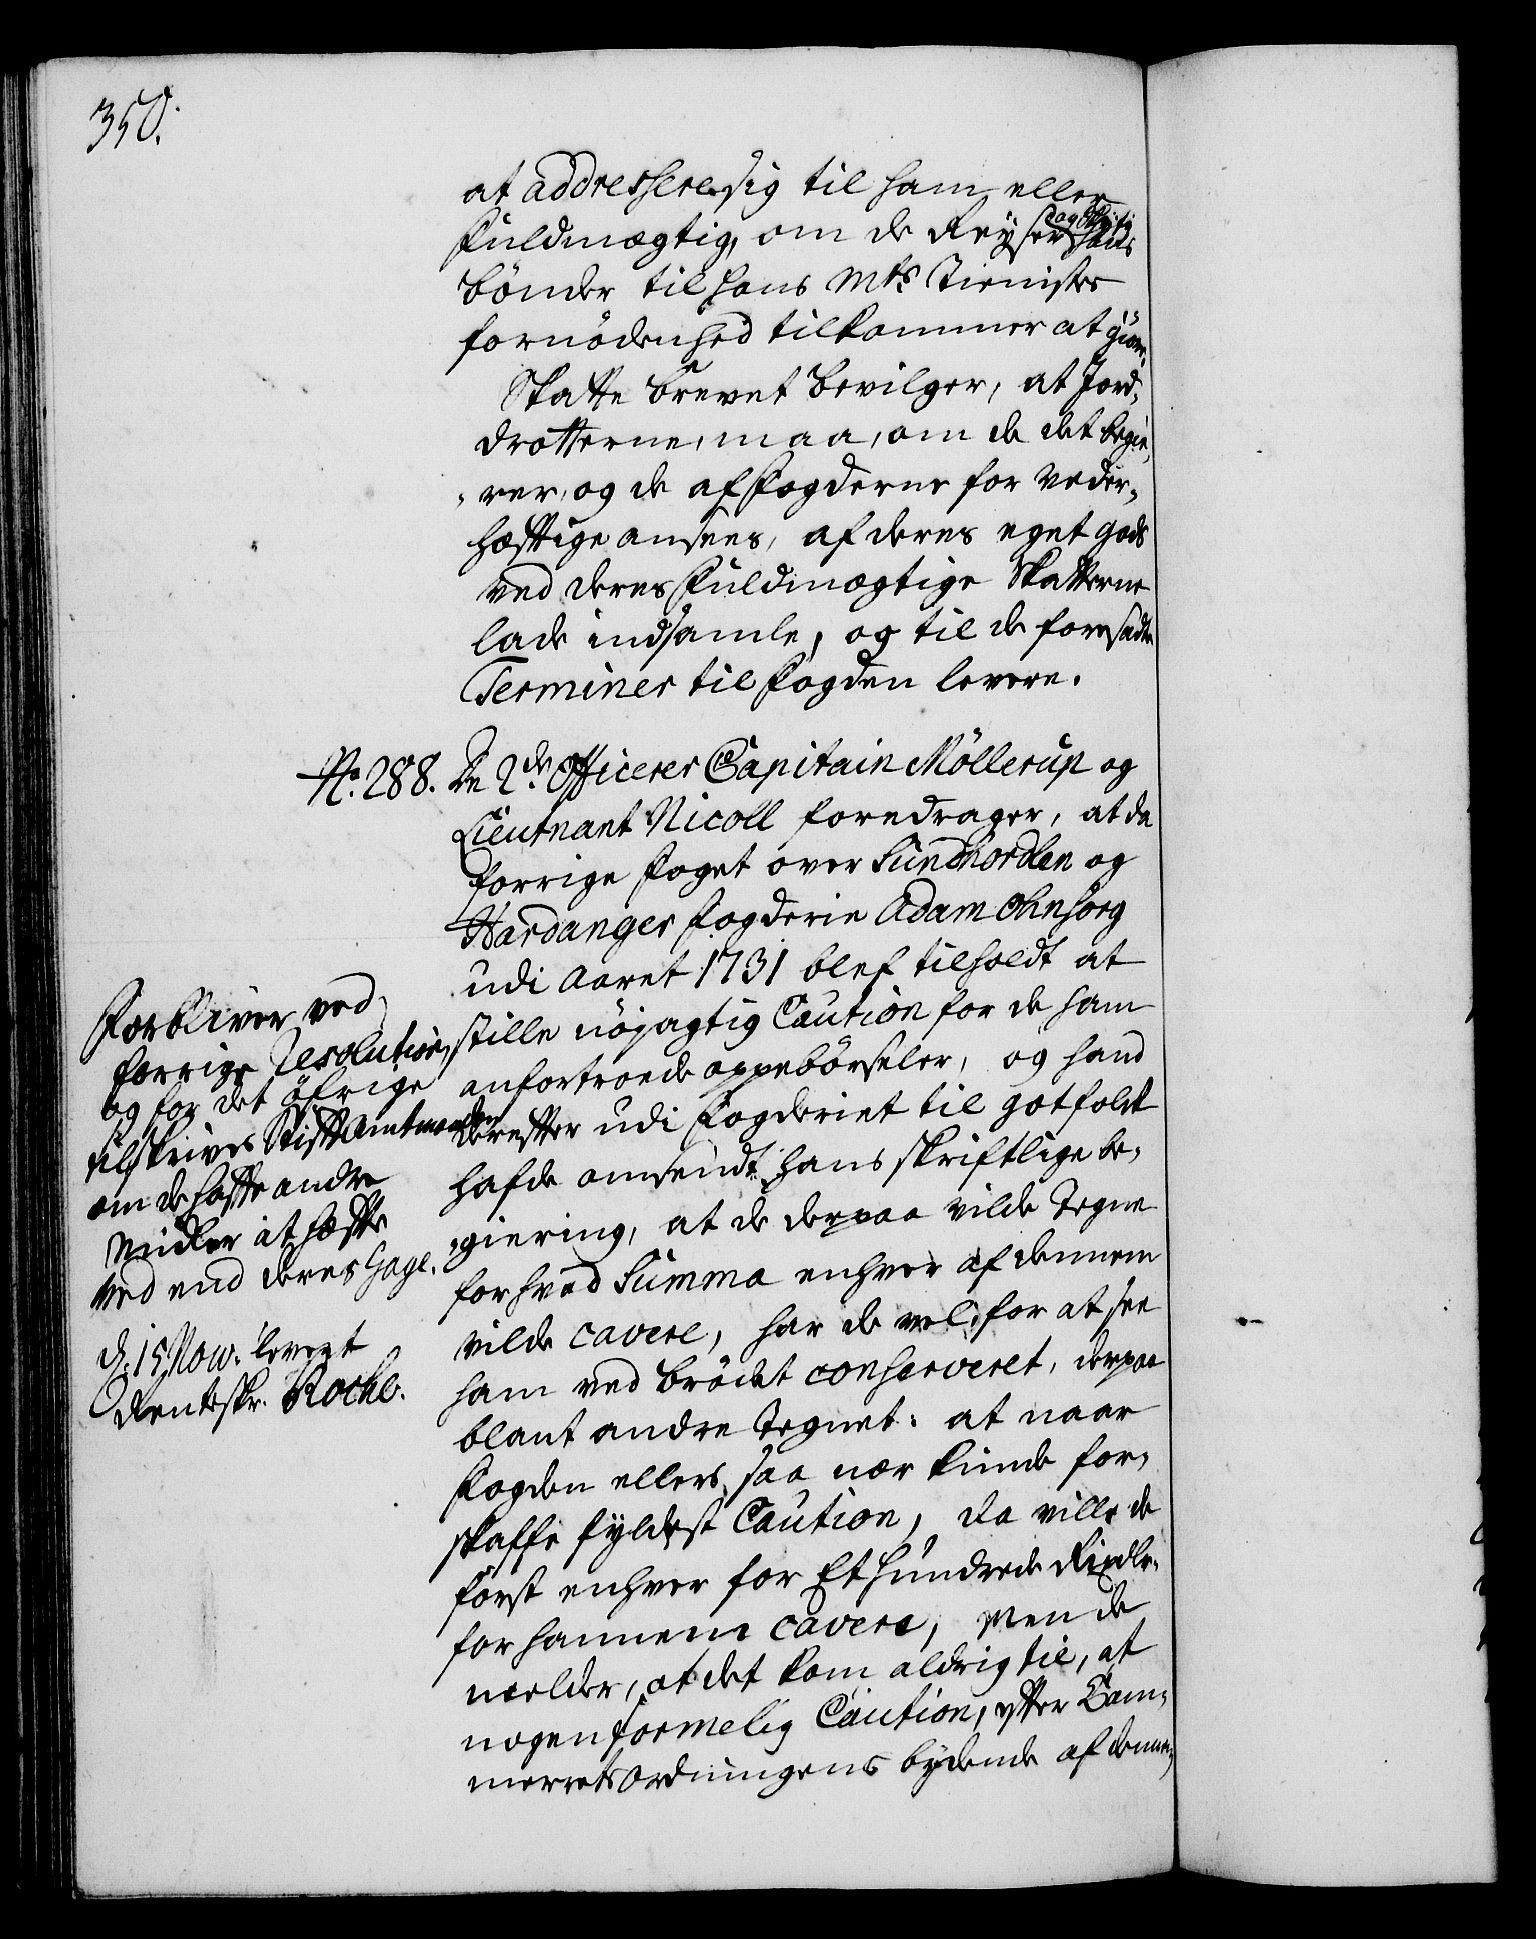 350.
at addressere sig til ham eller
Fuldmægtig, om de Reyser hans
bönder til hans Mts. Tieniste
fornödenhed tilkommer at giöre.
Skatte brevet bevilger, at Jord-
drotterne, maa, om de det begie-
-rer, og de af Fogderne for veder-
hæftige ansees, af deres eget gods
ved deres Fuldmægtige Skatterne
lade indsamle, og til de foresadte
Terminer til Fogden levere.
No. 288. De 2de Officerer Capitain Möllerup og
Lieutnant Nicoll foredrager, at da
forrige Foget over Sundhordlen og
Hardanger Fogderie Adam Ohnsorg
udi Aaret 1731 blef tilholdt at
stille nöjagtig Caution for de ham
anfortroede oppebörseler, og hand
derefter udi Fogderiet til got folk
hafde omsendt hans skriftlige be-
-giering, at de derpaa vilde Tegne
for hvad Summa enhver af dennem
vilde cavere, har de vel, for at see
ham ved brödet conserveret, derpaa
blant andre Tegnet: at naar
Fogden ellers saa nær kunde for-
skaffe fyldest Caution, da ville de
först enhver for Et hundrede Rixdlr.
for hannem cavere, Men de
melder, at det kom aldrig til, at
nogen formelig Caution, efter Cam-
merretsordningens bydende af dennem
Forbliver ved
forrige Resolution,
og for det öfrige
tilskrives Stiftamtmanden
om de hafte andre
Midler at hæfte
ved end deres Gage.
d. 15 Nov. levert
Renteskr. Roche.